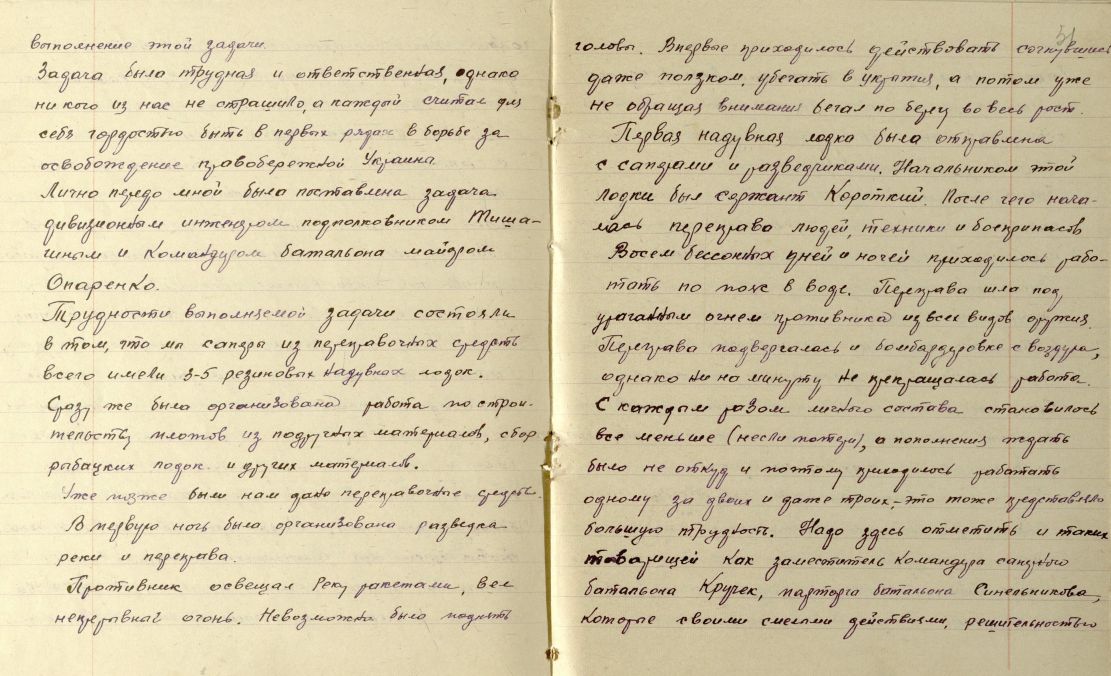 выполнение этой задачи
Задача была трудная и ответственная, однако
никого из нас не страшило, а каждый считал для
себя гордостью быть в первых рядах в борьбе за
освобождение правобережной Украины
Лично передо мной была поставлена задача
дивизионным инженером подполковником Тиша-
иным и командиром батальона майором
Опаренко.
Трудности выполняемой задачи состояли
в том, что мы саперы из переправочных средств
всего имели 3-5 резиновых надувных лодок.
Сразу же была организована работа по строи-
тельству плотов из подручных материалов, сбор
рыбацких лодок и других материалов.
Уже позже были нам даны переправочные средств.
В первую ночь была организована разведка
реки и переправа.
Противник освещал реку ракетами, вел
непрерывный огонь. Невозможно было поднять
51
головы. Впервые приходилось действовать согнувшись
даже ползком, убегать в укрытия, а потом уже
не обращая внимания бегал по берегу во весь рост.
Первая надувная лодка была отправлена
с саперами и разведчиками. Начальником этой
лодки был сержант Короткий. После чего нача-
лась переправа людей, техники и боеприпасов
Восем бессонных дней и ночей приходилось рабо-
тать по пояс в воде. Переправа шла под
ураганным огнем противника из всех видов оружия.
Переправа подвергалась и бомбардировке с воздуха,
однако ни на минуту не прекращалась работа.
С каждым разом личного состава становилось
все меньше (несли потери), а пополнения ждать
было не откуд и поэтому приходилось работать
одному за двоих и даже троих,-это тоже представляло
большую трудность. Надо здесь отметить и таких
товарищей как заместитель командира сапрного
батальона Кручек, парторга батальона Синельникова,
которые своими смелыми действиями, решительностью